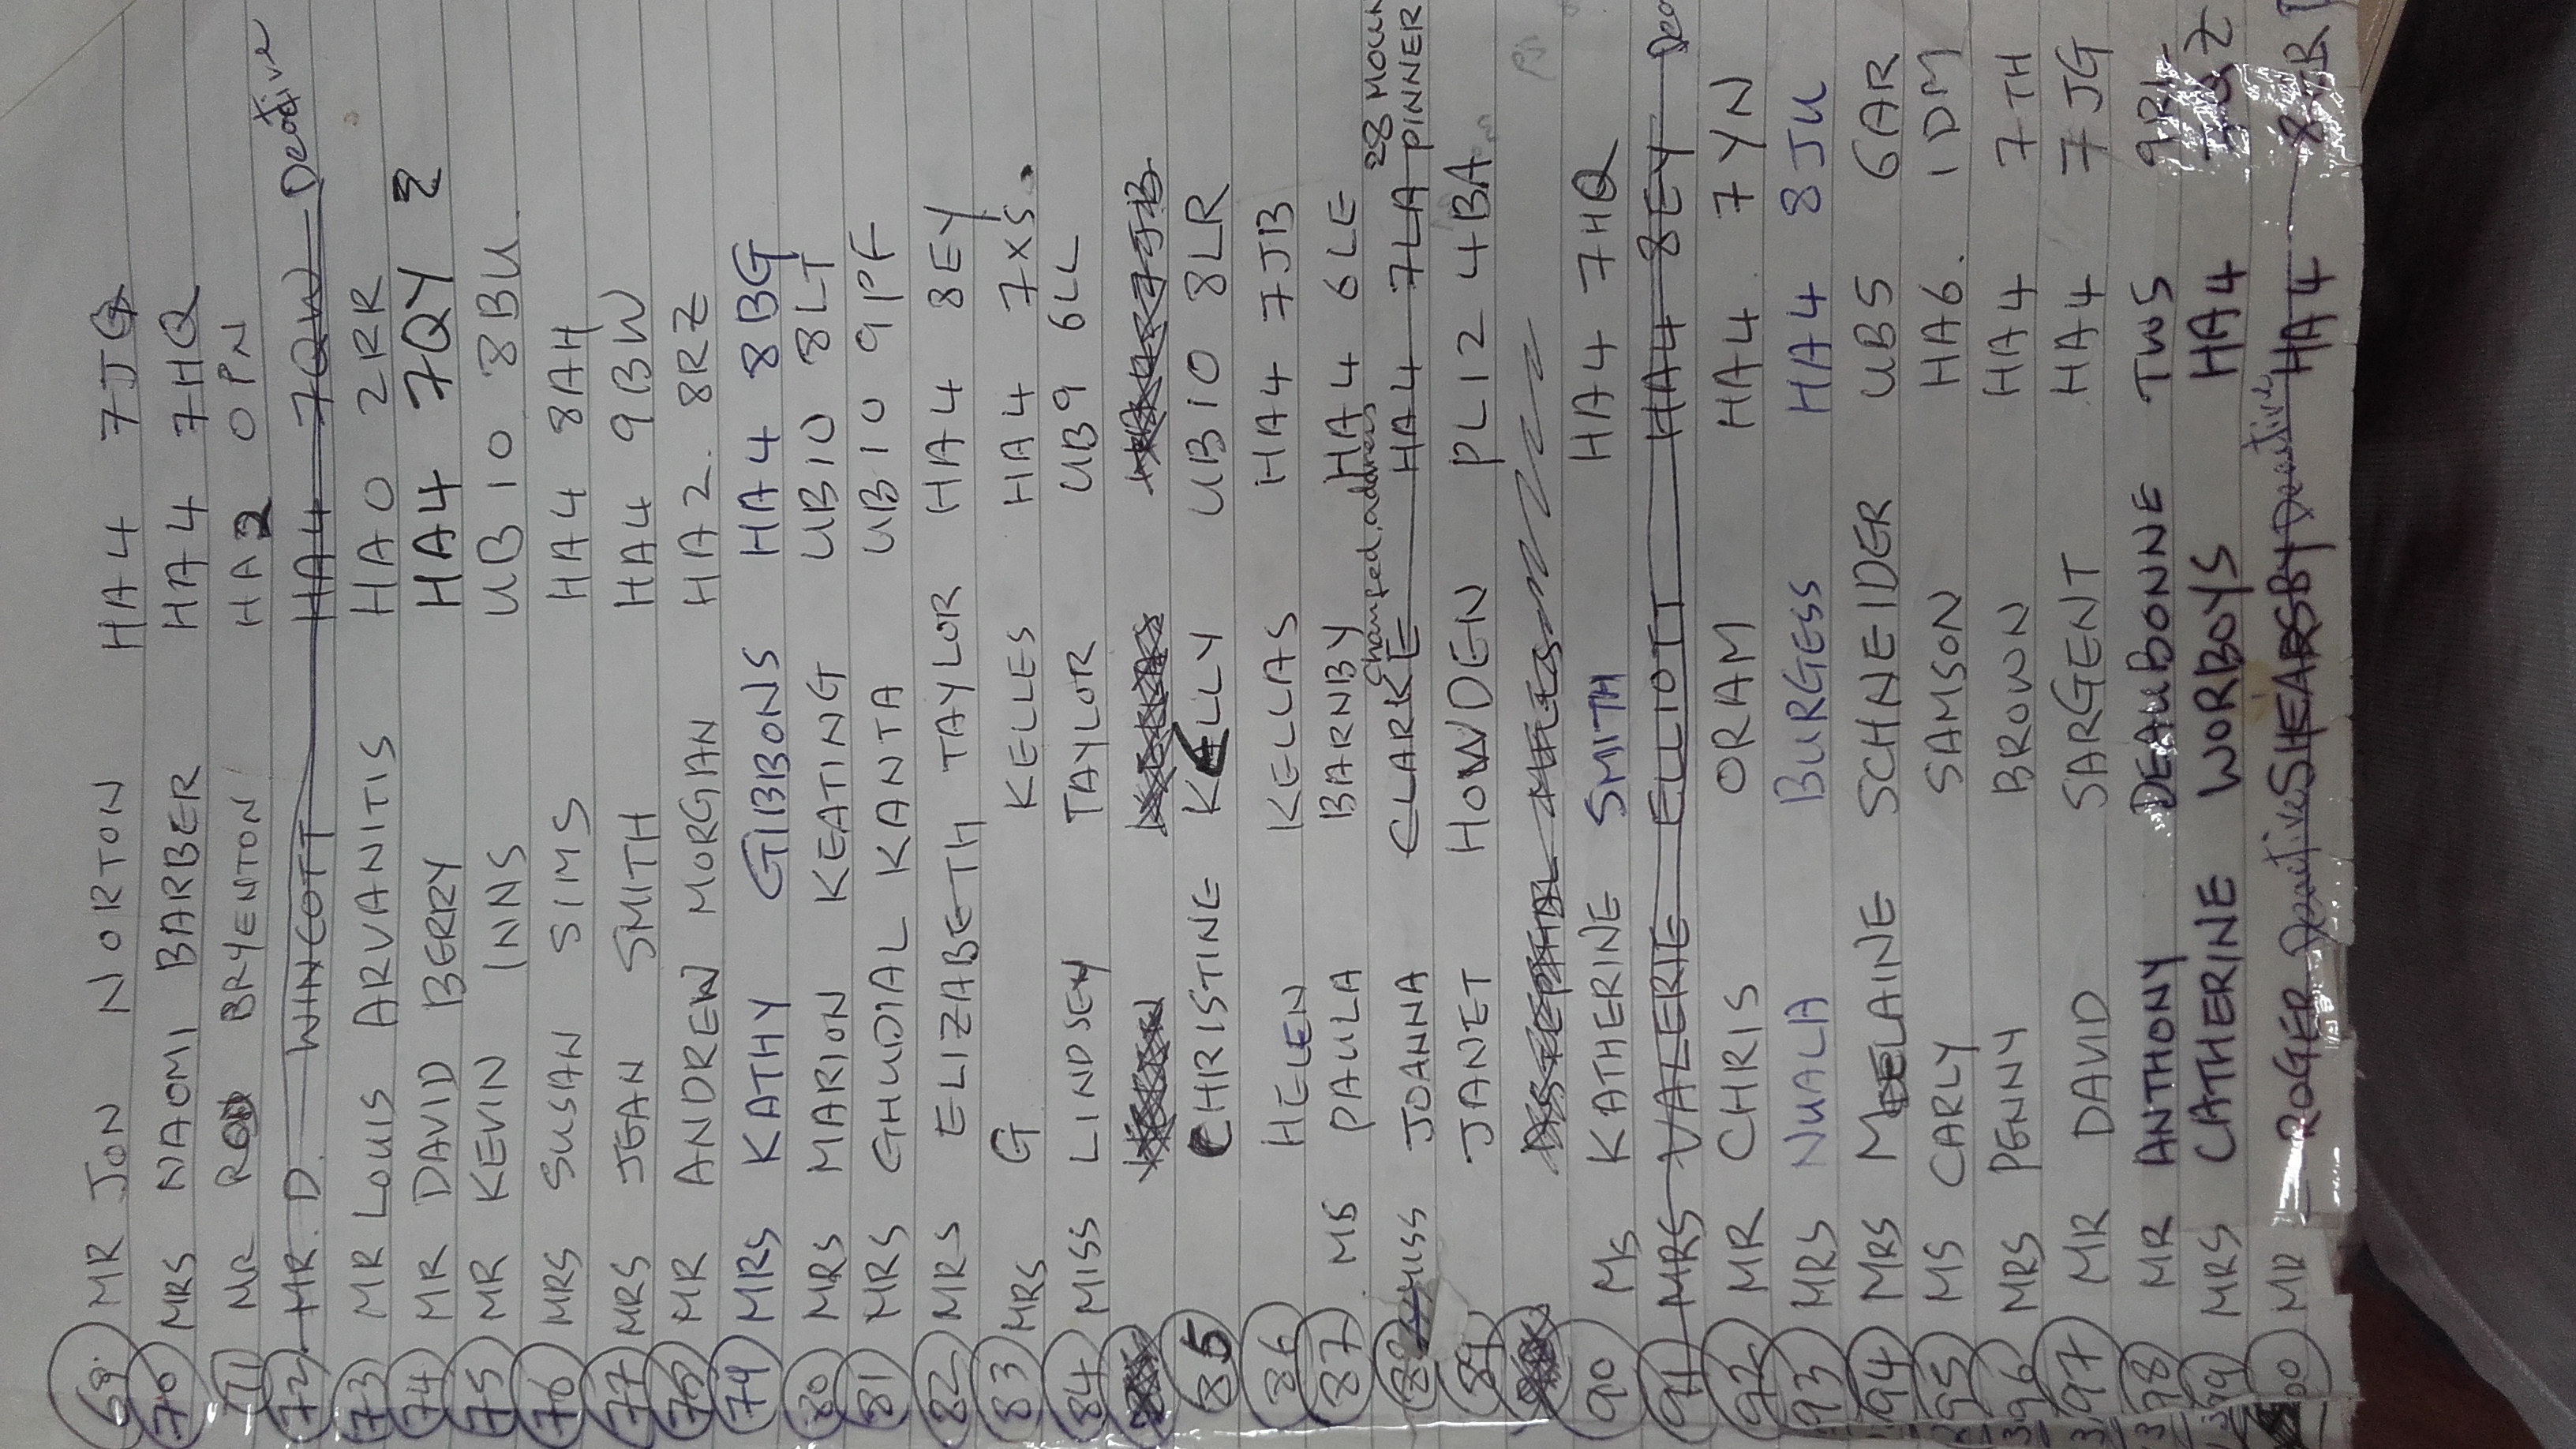 69. MR JON NORTON HA4 7JQ
70 MRS NAOMI BARBER HA4 7HQ
71 MR ROD BRYENTON HA2 0PN
72 MR. D. WINCOTT HA4 7QW Deactive
73 MR LOUIS ARVANITIS HA0 2RR
74 MR DAVID BERRY HA4 7QY
75 MR KEVIN INNS UB10 8BU.
76 MRS SUSAN SIMS HA4 8AH
77 MRS JEAN SMITH HA4 9BW
78 MR ANDREW MORGAN HA2. 8RZ
79 MRS KATHY GIBBONS HA4 8BG
80 MRS MARION KEATING UB10 8LT
81 MRS GHUDIAL KANTA UB10 9PF
82 MRS ELIZABETH TAYLOR HA4 8EY
83 MRS G KELLES HA4 7XS.
84 MISS LINDSEY TAYLOR UB9 6LL
HELEN KELLAS HA4 7JB
85 CHRISTINE KELLY UB10 8LR
86 HELEN KELLAS HA4 7JB
87. MS PAULA BARNBY HA4 6LE
changed address 28 MOUN
88 MISS JOANNA CLARKE HA4 7LA PINNER
89 JANET HOWDEN PL12 4BA
MILLS
90 MS KATHERINE SMITH HA4 7HQ
91 MRS VALERIE ELLIOTT HA4 8EY Dea
92 MR CHRIS ORAM HA4 7YN
93 MRS NUALA BURGESS HA4 8JU
94 MRS MDELAINE SCHNEIDER UB5 6AR
95 MS CARLY SAMSON HA6. 1DM
96 MRS PENNY BROWN HA4 7TH
97 MR DAVID SARGENT HA4 7JG
98 MR ANTHONY DEAUBONNE TW5 9RL
99 MRS CATHERINE WORBOYS HA4
00 MR ROGER Deactive SHEARSBY Deactive HA4